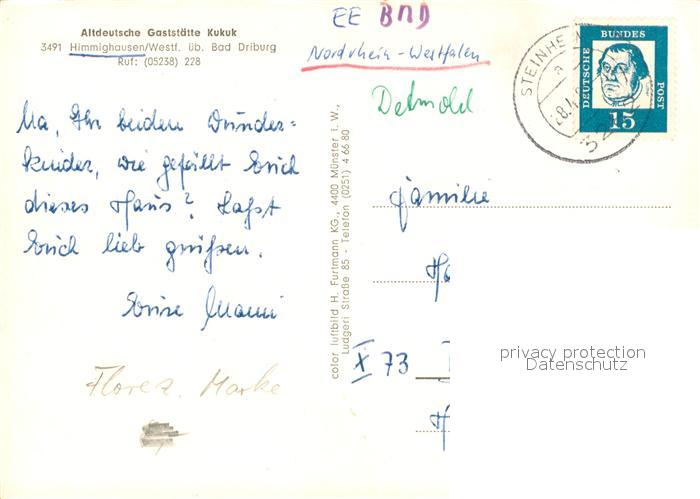 Altdeutsche Gaststätte Kukuk
3491 Himmighausen/Westf. üb. Bad Driburg
Ruf: (05238) 228
EE BND
Nordrhein-Westfalen
Detmold
Na, Ihr beiden Wunder=
kinder, wie gefällt Euch
dieses Haus? Laßt
Euch lieb grüßen.
Eure Manni
color luftbild H. Furtmann KG., 4400 Münster i. W.,
Ludgeri Straße 85 - Telefon (0251) 4 66 80
STEINHEIM
DEUTSCHE BUNDES POST
15
Familie
X 73
privacy protection
Datenschutz